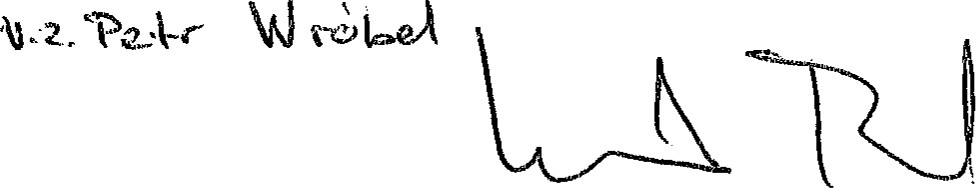 v.z. Petr Wróbel